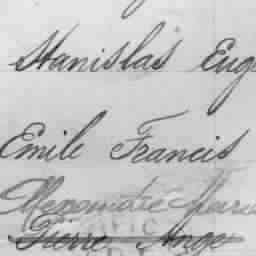 Stanislas Euge
Emile Francis
Pierre Ange